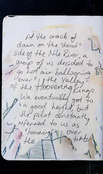 At the crack of
dawn on the "dead"
side of the Nile River, a
group of us decided to
go hot air ballooning
over the Valley
of the Hoovering Kings
We eventually got to
a good height but
the pilot constantly
referred to us as
"hoovering" over
the